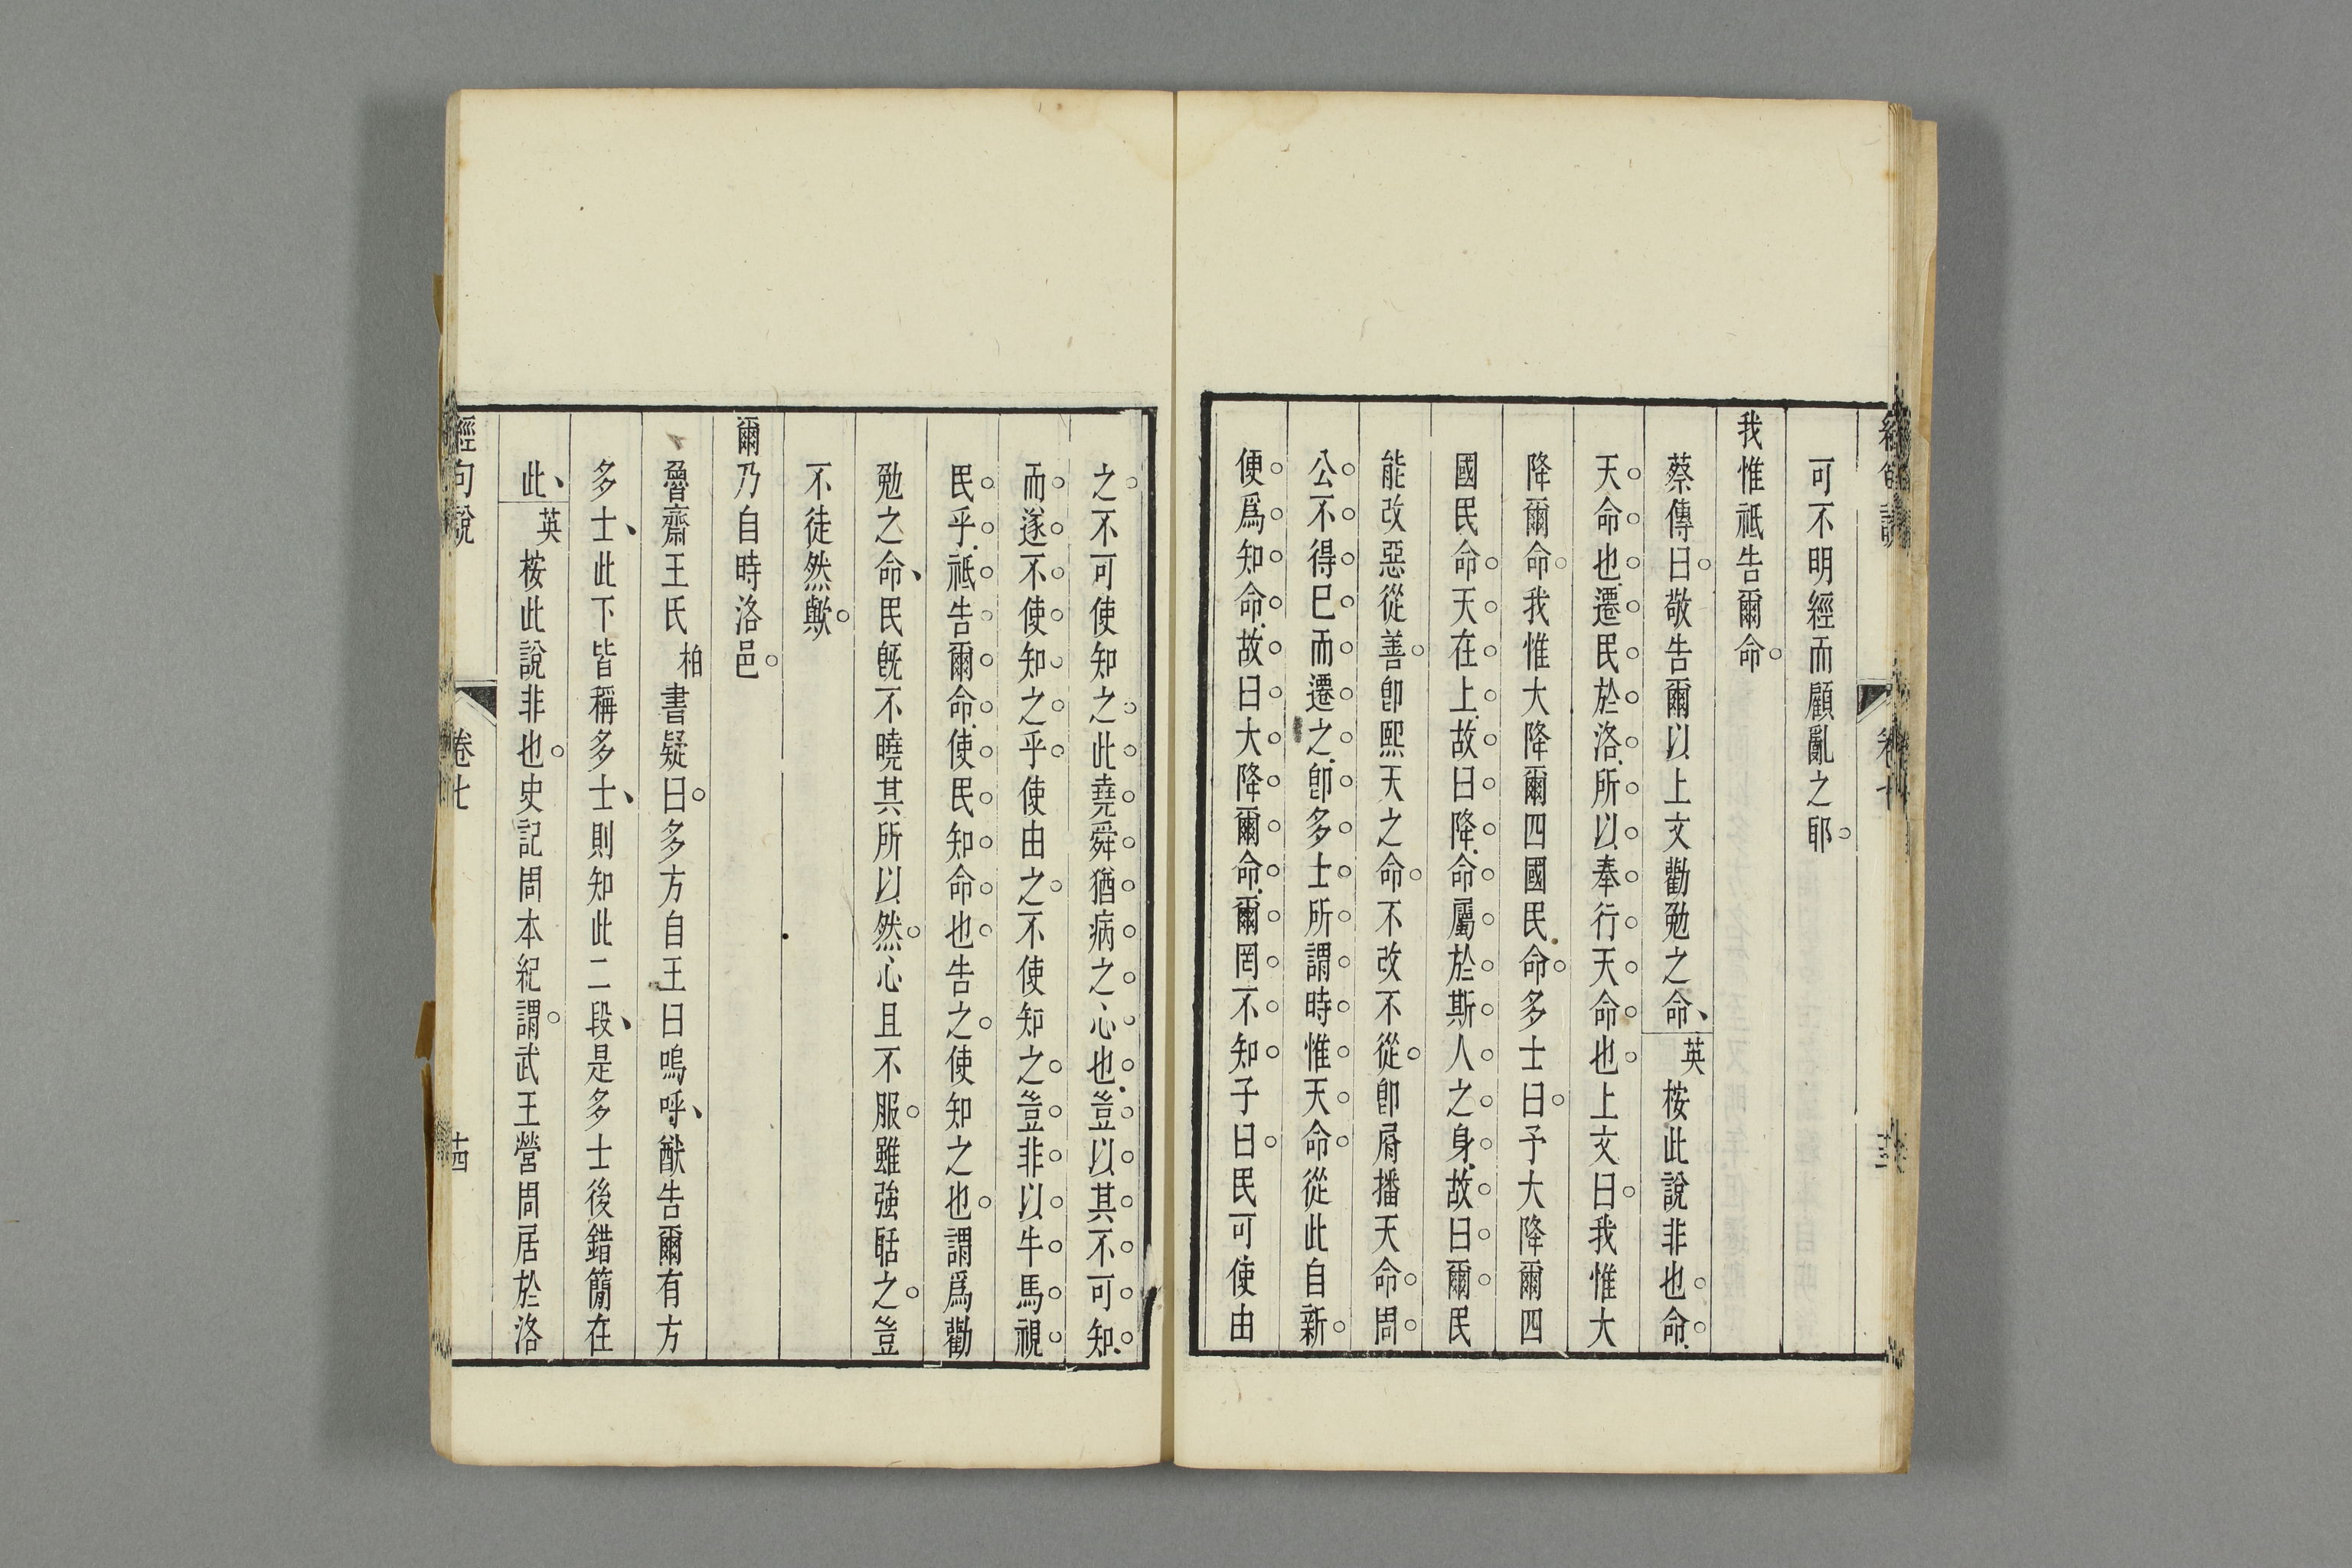 可不明經而顧亂之耶
我惟祗告爾命
蔡傳曰敬告爾以上文勸勉之命英桉此說非也命
天命也遷民於洛所以奉行天命也上文曰我惟大
降爾命我惟大降爾四國民命多士曰予大降爾四
國民命天在上故曰降命屬於斯人之身故曰爾民
能改惡從善卽熙天之命不改不從卽屑播天命周
公不得已而遷之卽多士所謂時惟天命從此自新
便爲知命故曰大降爾命爾罔不知子曰民可使由
之不可使知之此堯舜猶病之心也豈以其不可知
而遂不使知之乎使由之不使知之豈非以牛馬視
民乎祗告爾命使民知命也告之使知之也謂爲勸
勉之命民旣不曉其所以然心且不服雖強聒之豈
不徒然歟
爾乃自時洛邑
魯齋王氏柏書疑曰多方自王曰嗚呼猷告爾有方
多士此下皆稱多士則知此二段是多士後錯簡在
此英桉此說非也史記周本紀謂武王營周居於洛
經句說 卷七 十四